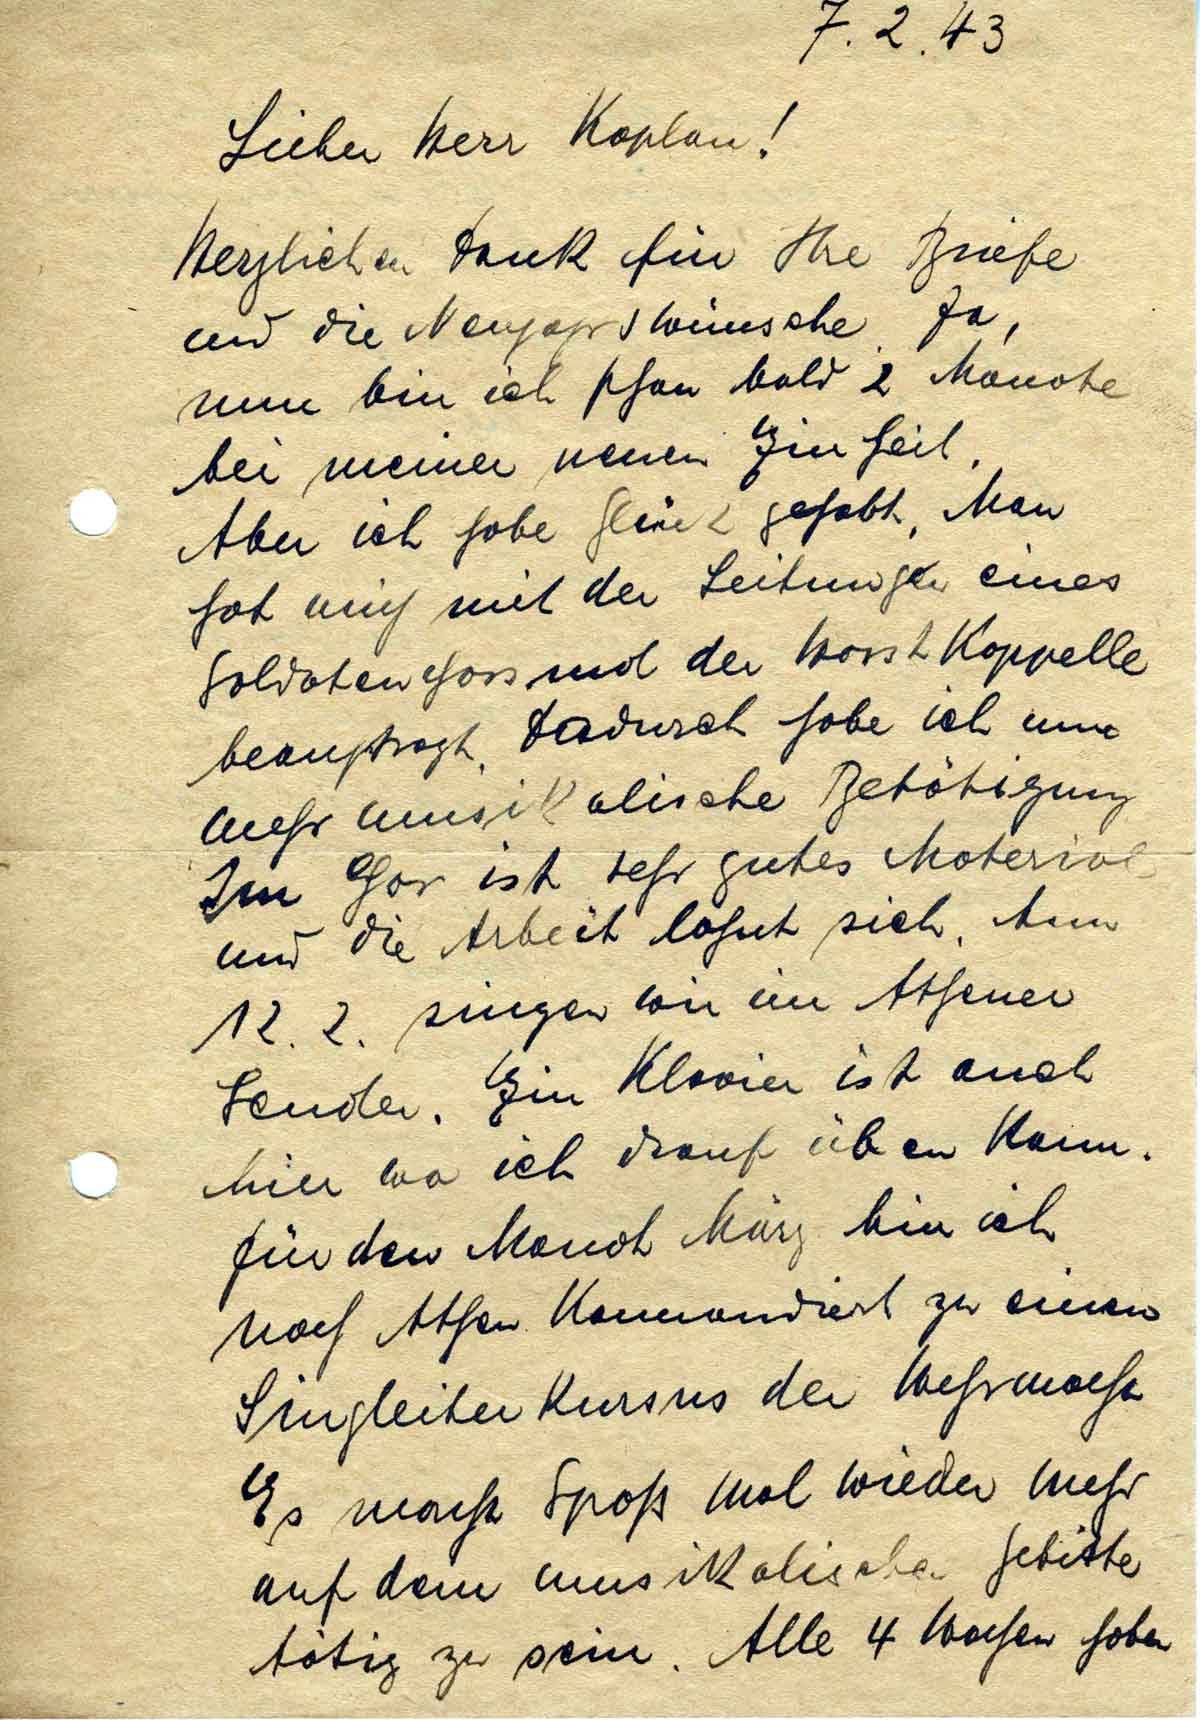 7. 2. 43
Lieber Herr Kaplan!
Herzlichen Dank für Ihre Briefe
und die Neujahrswünsche. Ja,
nun bin ich schon bald 2 Monate
bei meiner neuen Einheit.
Aber ich habe Glück gehabt. Man
hat mich mit der Leitung eines
Soldatenchors und der Kapelle
beauftragt. Dadurch habe ich nun
mehr musikalische Betätigung
Im Chor ist sehr gutes Material
und die Arbeit lohnt sich. Am
12. 2. singen wir im Athener
Sender. Ein Klavier ist auch
hier wo ich drauf üben kann.
Für den Monat März bin ich
nach Athen kommandiert zu einem
Singleiterkursus der Wehrmacht
Es macht Spaß mal wieder mehr
auf dem musikalischen Gebiete
tätig zu sein. Alle 4 Wochen haben